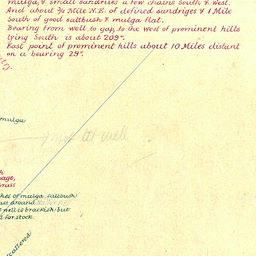 mulga, & small sandries a few chains South & West.
And about ¾ Mile N.E. of defined sandriges & 1 Mile
South of good saltbush & mulga flat.
Bearing from well to gap to the west of prominent hills
lying South is about 209°.
East point of prominent hills about 10 Miles distant
on a bearing 29°.
mulga
at well
of mulga saltbush
around
well is brackish but
for stock.
scattered